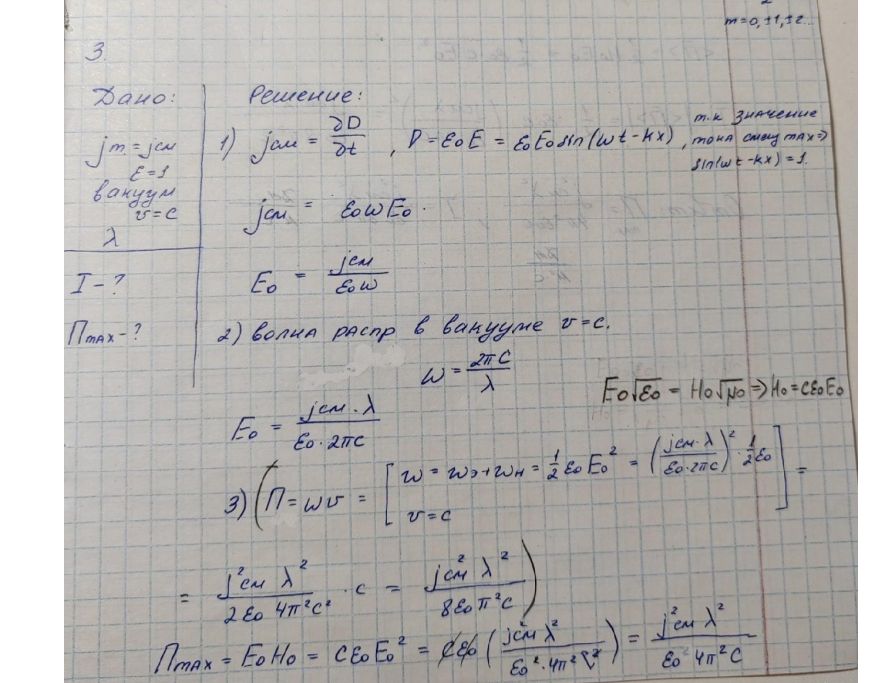 m=0, ±1, ±2...
3.
Дано:
jm = jсм
ε=1
вакуум
v=c
λ
I - ?
Пmax - ?
Решение:
1) jсм = ∂D/∂t , D = ε₀E = ε₀E₀ sin(ωt-kx) ,
т.к значение
тока смещ max ⇒
sin(ωt-kx) = 1.
jсм = ε₀ωE₀.
E₀ = jсм/ε₀ω
2) волна распр в вакууме v=c.
ω = 2πc/λ
E₀√ε₀ = H₀√μ₀ ⇒ H₀ = cε₀E₀
E₀ = jсм·λ/ε₀·2πc
3) (П = wv = [ w = wэ+wм = 1/2 ε₀E₀² = (jсм·λ/ε₀·2πc)² · 1/2 ε₀
v=c ] =
= j²см λ²/2ε₀ 4π²c² · c = j²см λ²/8ε₀π²c )
Пmax = E₀H₀ = cε₀E₀² = cε₀ (j²см λ²/ε₀²·4π²c²) = j²см λ²/ε₀ 4π²c